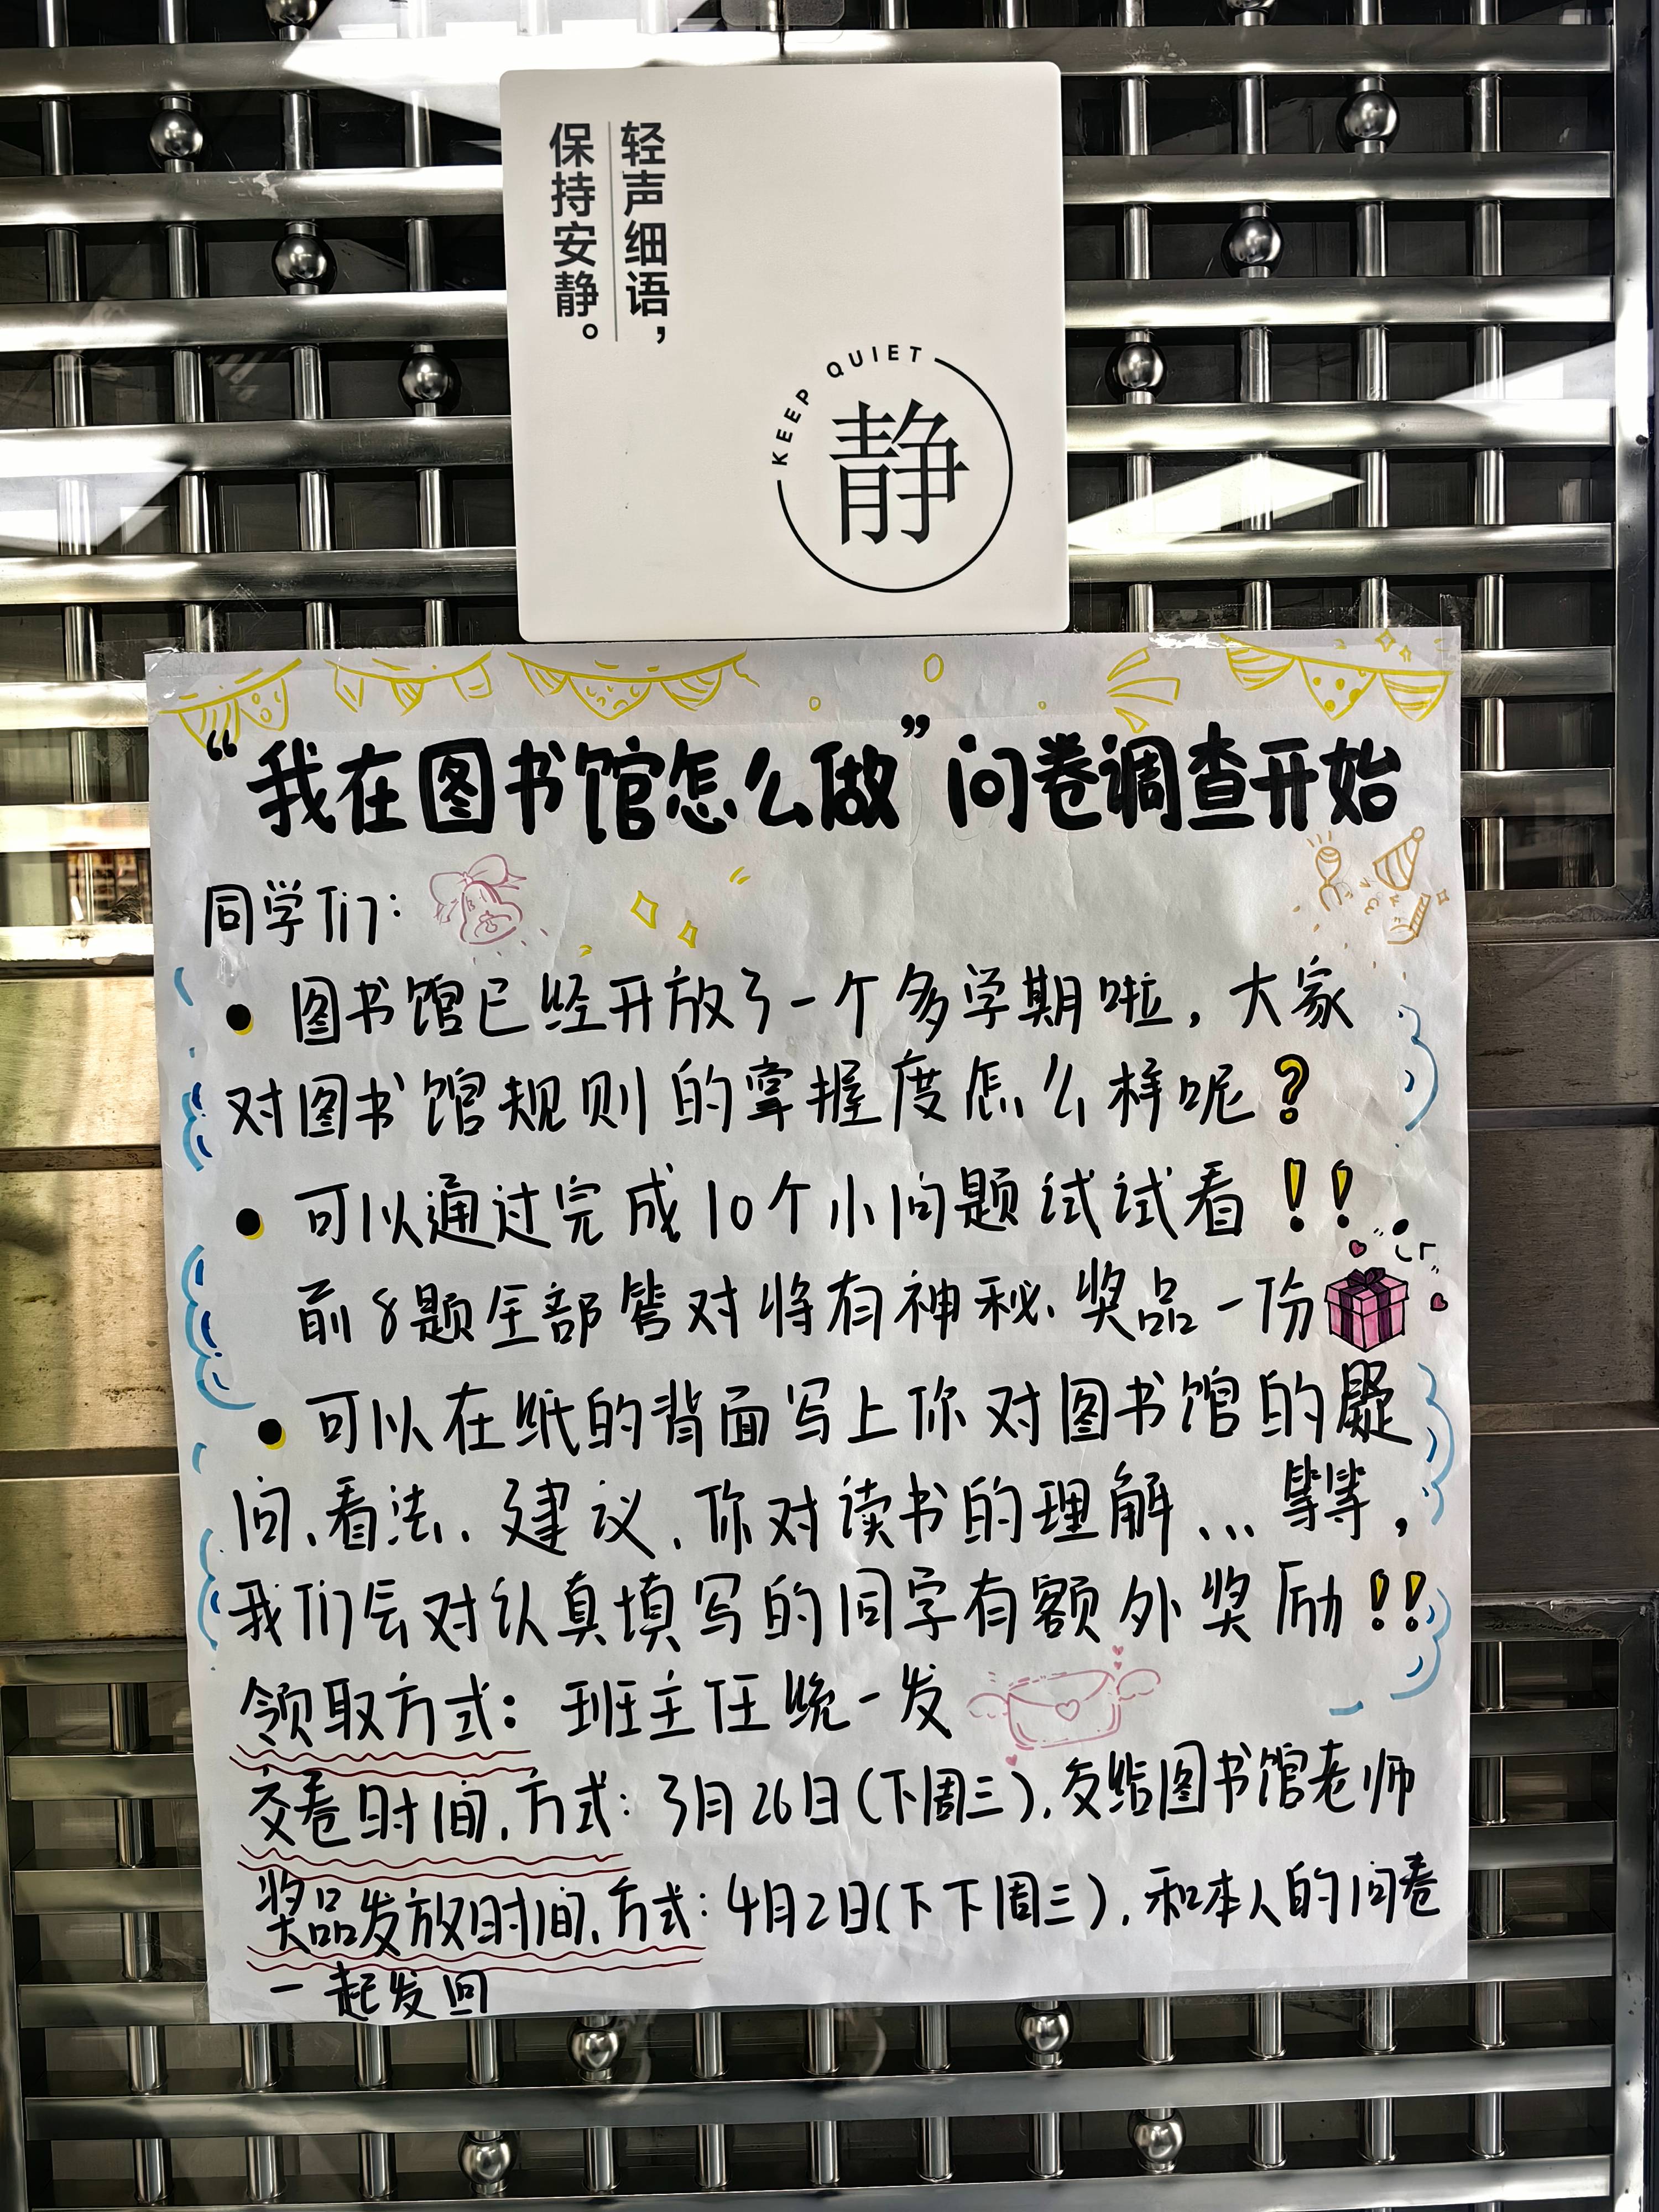 轻声细语，
保持安静。
KEEP QUIET
静
“我在图书馆怎么做”问卷调查开始
同学们：
● 图书馆已经开放了一个多学期啦，大家
对图书馆规则的掌握度怎么样呢？
● 可以通过完成10个小问题试试看！！
前8题全部答对将有神秘奖品一份
● 可以在纸的背面写上你对图书馆的疑
问、看法、建议、你对读书的理解、…等等，
我们会对认真填写的同学有额外奖励！！
领取方式：班主任统一发
交卷时间、方式：3月26日（下周三）、交给图书馆老师
奖品发放时间、方式：4月2日（下下周三）、和本人的问卷
一起发回